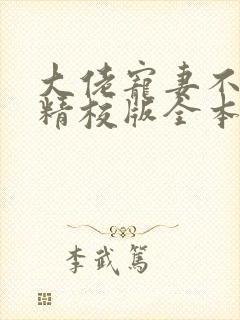 大佬宠妻不
精校版全本
李武篤